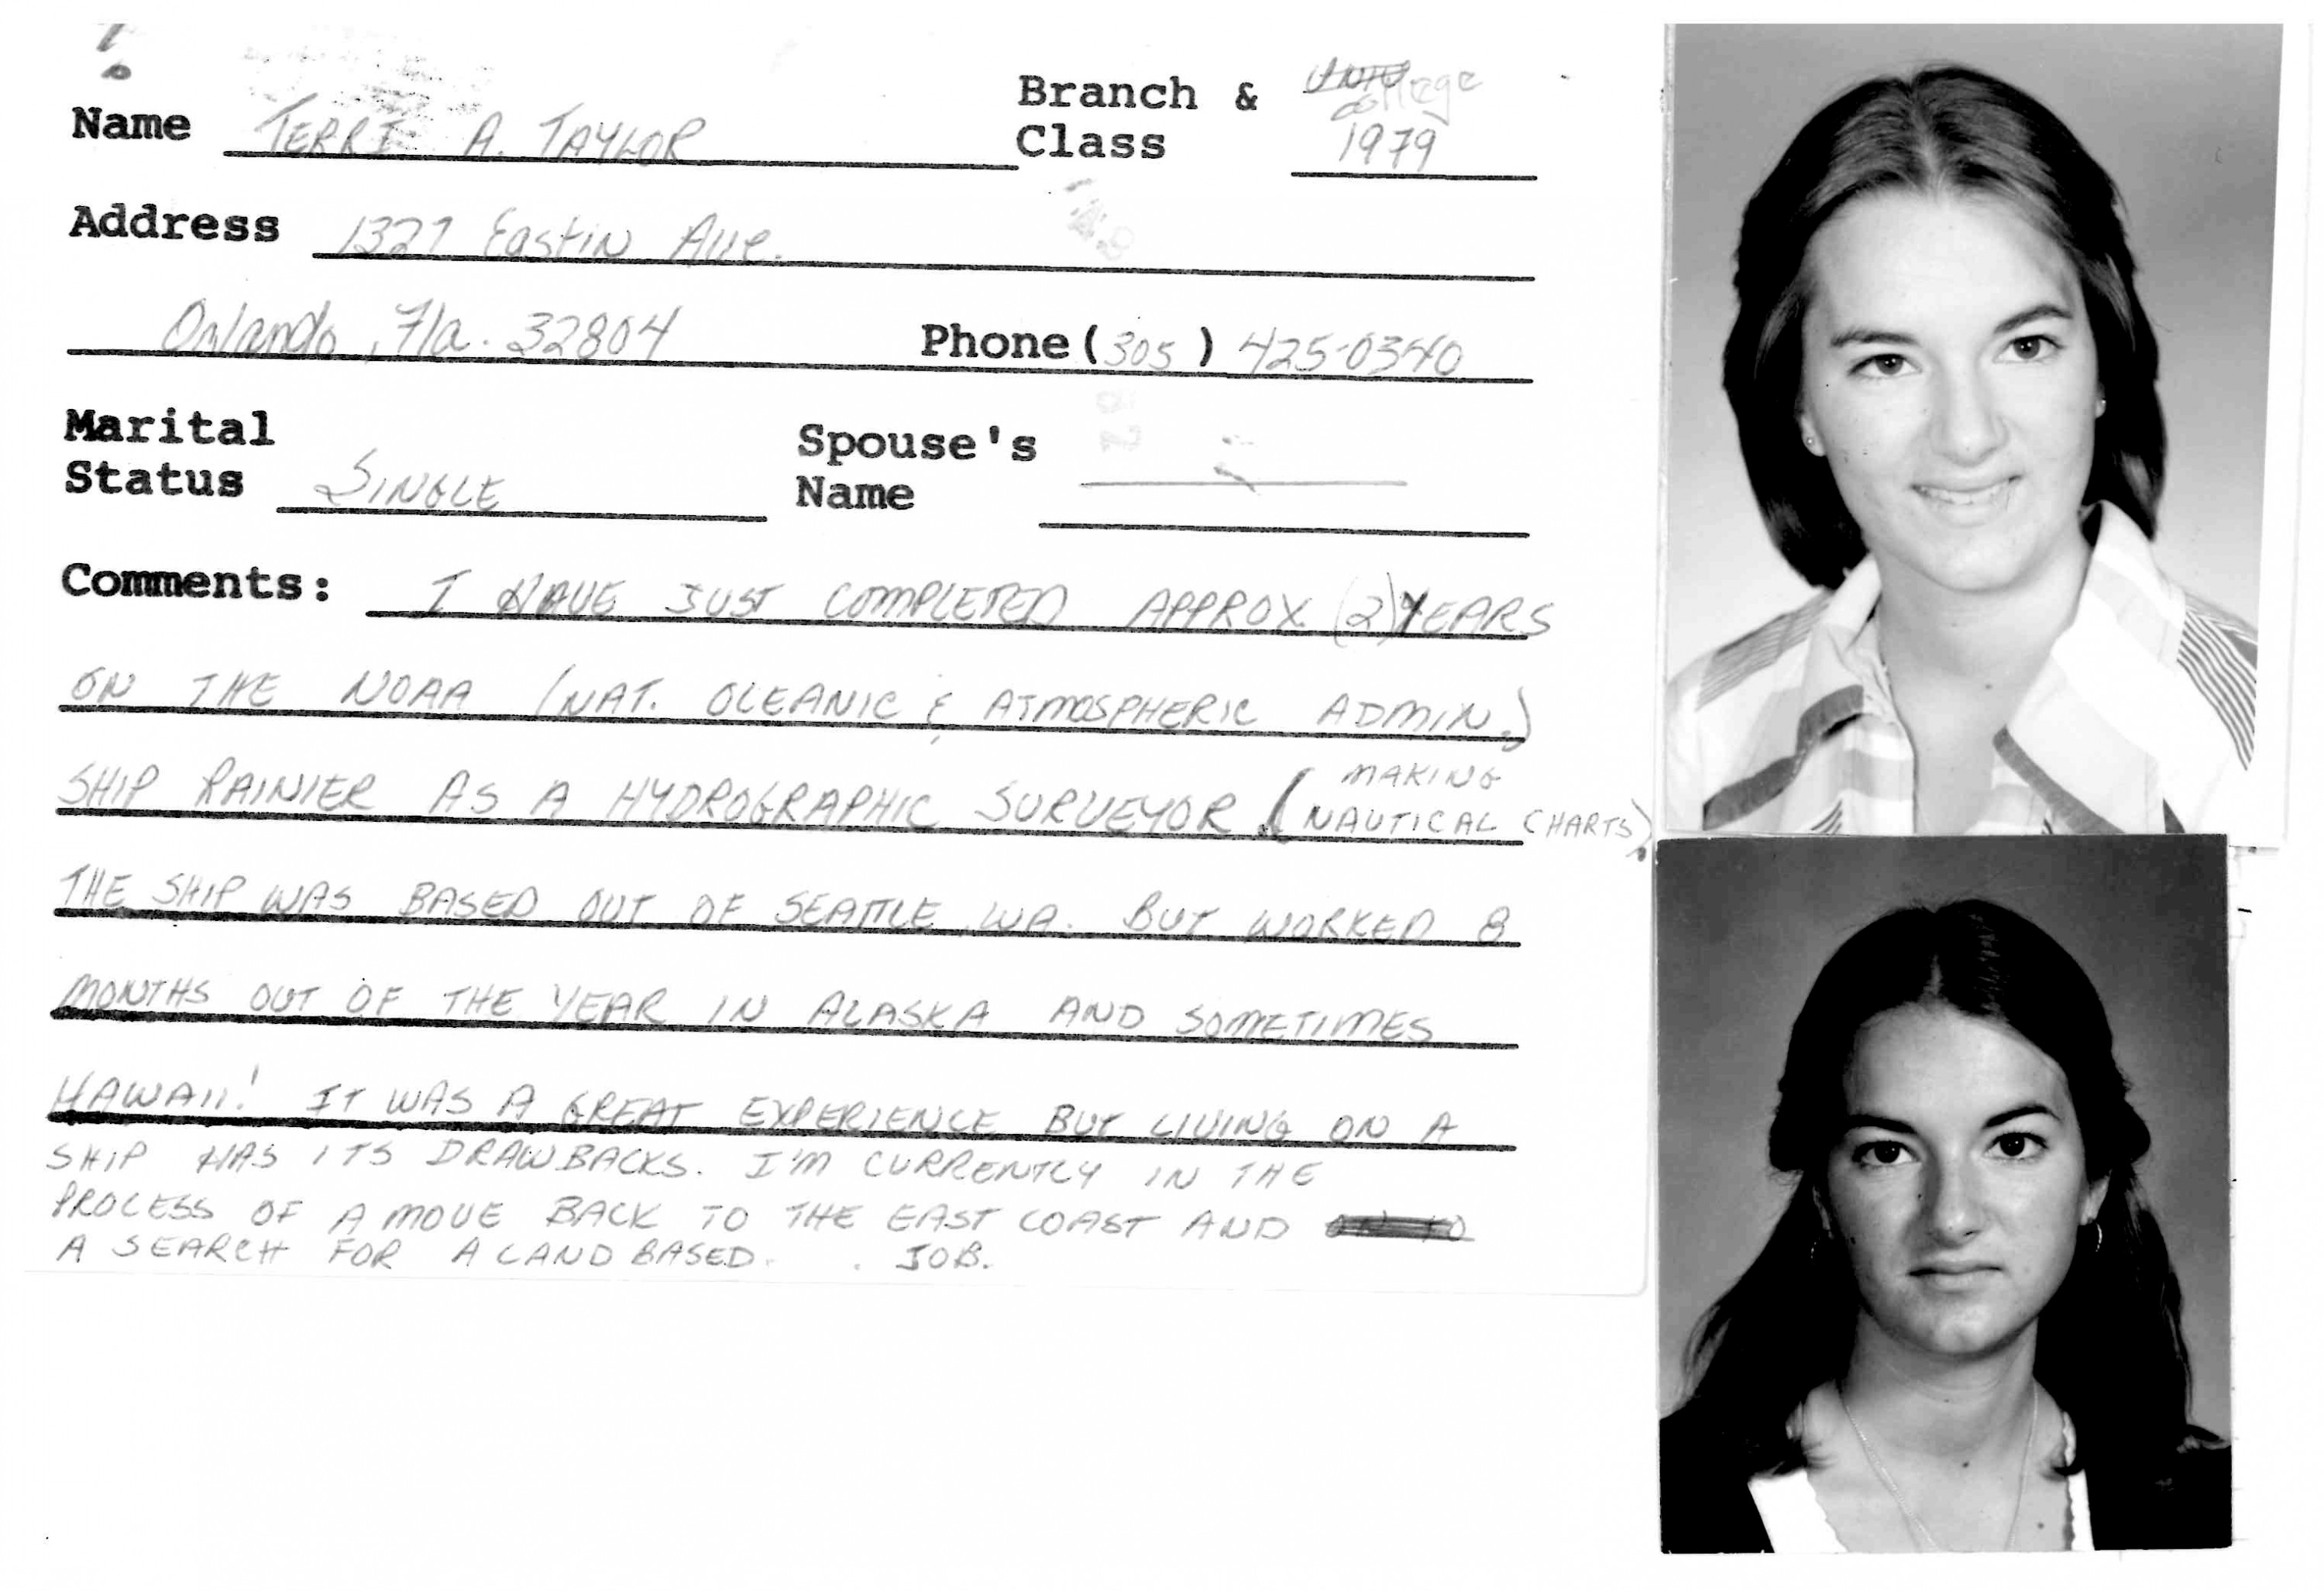 Branch & college
Name TERRI A. TAYLOR Class 1979
Address 1327 Eastin Ave.
Orlando, Fla. 32804 Phone (305) 425-0340
Marital Spouse's
Status SINGLE Name
Comments: I HAVE JUST COMPLETED APPROX. (2) YEARS
ON THE NOAA (NAT. OCEANIC & ATMOSPHERIC ADMIN.)
SHIP RAINIER AS A HYDROGRAPHIC SURVEYOR (MAKING
NAUTICAL CHARTS).
THE SHIP WAS BASED OUT OF SEATTLE, WA. BUT WORKED 8
MONTHS OUT OF THE YEAR IN ALASKA AND SOMETIMES
HAWAII! IT WAS A GREAT EXPERIENCE BUT LIVING ON A
SHIP HAS ITS DRAWBACKS. I'M CURRENTLY IN THE
PROCESS OF A MOVE BACK TO THE EAST COAST AND
A SEARCH FOR A LAND BASED JOB.